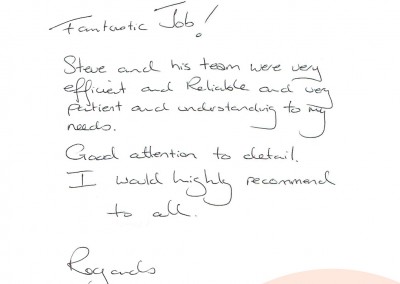 Fantastic Job!
Steve and his team were very
efficient and Reliable and very
patient and understanding to my
needs.
Good attention to detail.
I would highly recommend
to all.
Regards